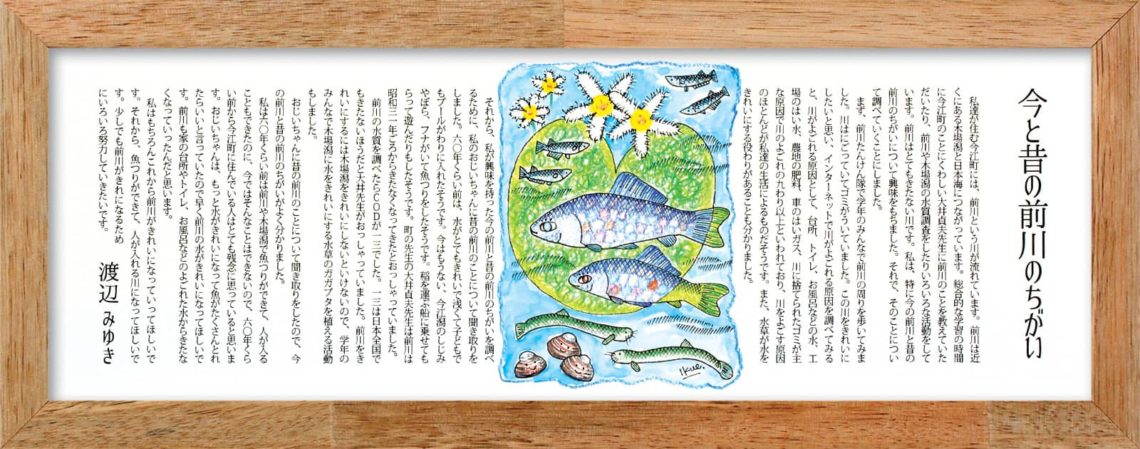 今と昔の前川のちがい
私達が住む今江町には、前川という川が流れています。前川は近
くにある木場潟と日本海につながっています。総合的な学習の時間
に今江町のことにくわしい大井貞夫先生に前川のことを教えていた
だいたり、前川や木場潟の水質調査をしたりいろいろな活動をして
います。前川はとてもきたない川です。私は、特に今の前川と昔の
前川のちがいについて興味をもちました。それで、そのことについ
て調べていくことにしました。
まず、前川たんけん隊で学年のみんなで前川の周りを歩いてみま
した。川はにごっていてゴミがういていました。この川をきれいに
したいと思い、インターネットで川がよごれる原因を調べてみる
と、川がよごれる原因として、台所、トイレ、お風呂などの水、工
場のはい水、農地の肥料、車のはいガス、川に捨てられたゴミが主
な原因で川のよごれの九わり以上といわれており、川をよごす原因
のほとんどが私達の生活によるものだそうです。また、水草が水を
きれいにする役わりがあることも分かりました。
それから、私が興味を持った今の前川と昔の前川のちがいを調べ
るために、私のおじいちゃんに昔の前川のことについて聞き取りを
しました。六〇年くらい前は、水がとてもきれいで浅くて子どもで
もプールがわりに入れたそうです。今はもうない、今江潟のしじみ
やぼら、フナがいて魚つりをしたそうです。稲を運ぶ船に乗せても
らって遊んだりもしたそうです。町の先生の大井貞夫先生は前川は
昭和三一年ごろからきたなくなってきたとおっしゃっていました。
前川の水質を調べたらCODが一三でした。一三は日本全国で
もきたないほうだと大井先生がおっしゃっていました。前川をき
れいにするには木場潟をきれいにしないといけないので、学年の
みんなで木場潟に水をきれいにする水草のガガブタを植える活動
もしました。
おじいちゃんに昔の前川のことについて聞き取りをしたので、今
の前川と昔の前川のちがいがよく分かりました。
私は六〇年くらい前は前川や木場潟で魚つりができて、人が入る
こともできたのに、今ではそんなことはできないので、六〇年くら
い前から今江町に住んでいる人はとても残念に思っていると思いま
す。おじいちゃんは、もっと水がきれいになって魚がたくさんとれ
たらいいと言っていたので早く前川の水がきれいになってほしいで
す。前川も家の台所やトイレ、お風呂などのよごれた水からきたな
くなっていったんだと思います。
私はもちろんこれから前川がきれいになっていってほしいで
す。それから、魚つりができて、人が入れる川になってほしいで
す。少しでも前川がきれいになるため
にいろいろ努力していきたいです。
渡辺 みゆき
Ikue.